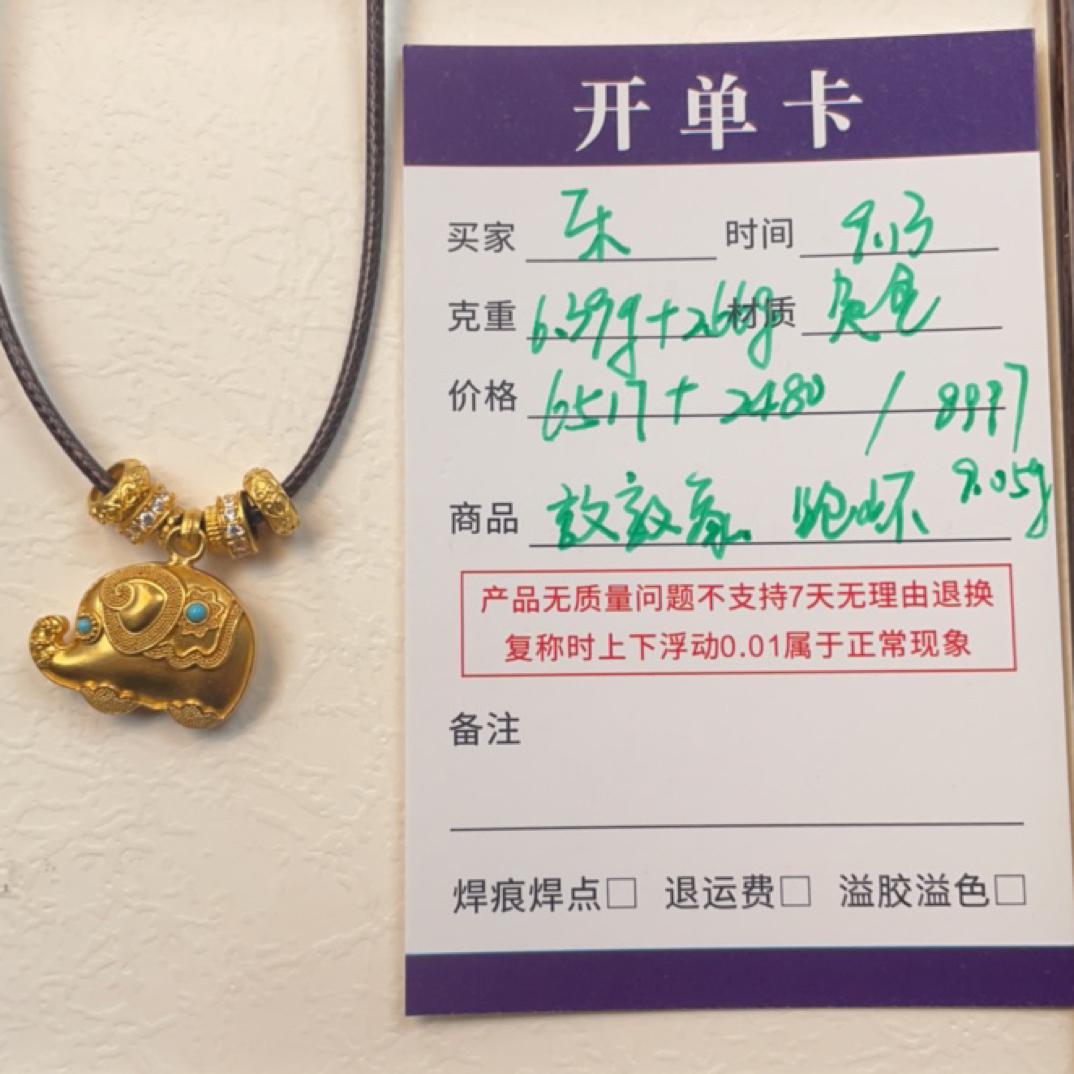 开单卡
买家 乐 时间 9.13
克重 6.39g+2.66g 材质 足金
价格 6517+2480 / 8997
9.05g
商品 敦敦象 跑环
产品无质量问题不支持7天无理由退换
复称时上下浮动0.01属于正常现象
备注
焊痕焊点□ 退运费□ 溢胶溢色□